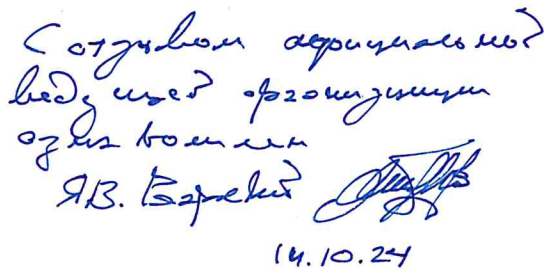 С отзывом официальной
ведущей организации
ознакомлен
Я.В.
14.10.24